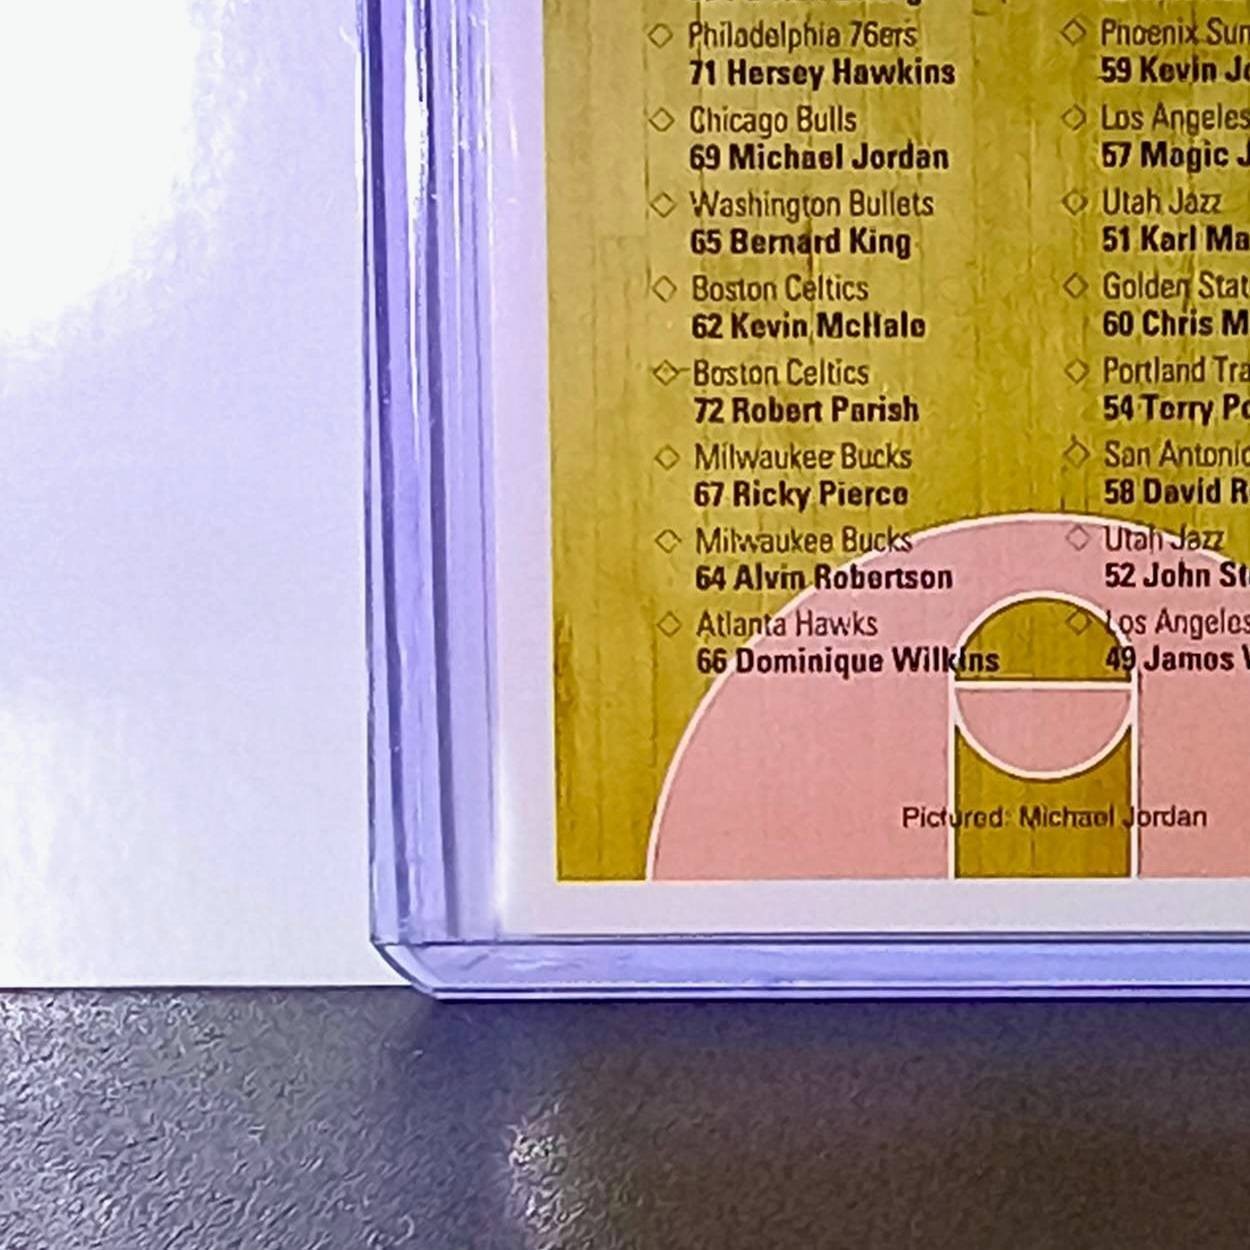 Philadelphia 76ers
71 Hersey Hawkins
Chicago Bulls
69 Michael Jordan
Washington Bullets
65 Bernard King
Boston Celtics
62 Kevin McHale
Boston Celtics
72 Robert Parish
Milwaukee Bucks
67 Ricky Pierce
Milwaukee Bucks
64 Alvin Robertson
Atlanta Hawks
66 Dominique Wilkins
Phoenix Sun
59 Kevin Jo
Los Angeles
57 Magic J
Utah Jazz
51 Karl Ma
Golden Stat
60 Chris M
Portland Tra
54 Terry Po
San Antonio
58 David R
Utah Jazz
52 John St
Los Angeles
49 James W
Pictured: Michael Jordan